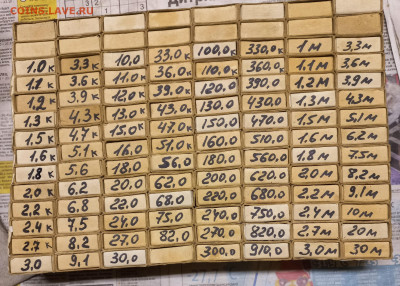 COINS.LAVE.RU
1.0к 3.3к 10,0 33,0к 100,0к 330,0к 1м 3,3м
1.1к 3.6к 11,0к 36,0к 110,0к 360,0 1.1м 3,6м
1.2к 3.9к 12,0к 39,0к 120,0 390,0 1.2м 3,9м
1.3к 4.3к 13,0к 43,0к 130,0 430,0 1.3м 4,3м
1.5к 4.7к 15,0к 47,0к 150,0 470,0 1.5м 5,1м
1.6к 5.1к 16,0 51,0к 160,0 510,0 1.6м 6,2м
1.8к 5.6 18,0 56,0 180,0 560,0 1.8м 7,5м
2.0к 6.2 20,0 62,0 200,0 620,0 2,0м 8,2м
2.2к 6.8 22,0 68,0 220,0 680,0 2.2м 9,1м
2.4к 7.5 24,0 75,0 240,0 750,0 2.4м 10м
2.7к 8.2 27,0 82,0 270,0 820,0 2.7м 20м
3.0 9.1 30,0 300,0 910,0 3,0м 30м